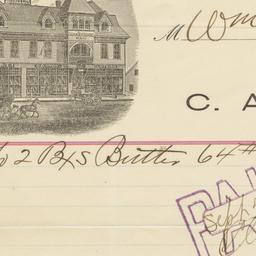 M Wm
C. A
To 2 Bxs Butter 64#
PAI
Sept